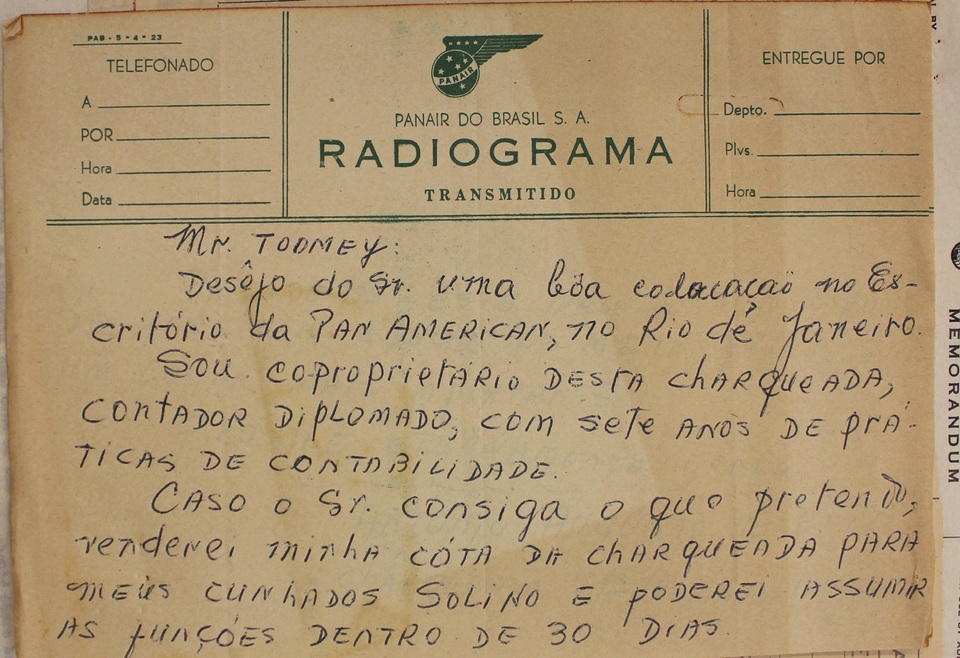 PAB - 5 - 4 - 23
TELEFONADO
A
POR
Hora
Data
PANAIR
PANAIR DO BRASIL S. A.
RADIOGRAMA
TRANSMITIDO
ENTREGUE POR
Depto.
Plvs.
Hora
Mr. TOOMEY:
Desêjo do Sr. uma bôa colocação no Es-
critório da PAN AMERICAN, no Rio de Janeiro.
Sou coproprietário DESTA charqueada,
contador diplomado, com sete anos de prá-
ticas de contabilidade.
Caso o Sr. consiga o que pretendo,
venderei minha cóta da charqueada para
meus cunhados Solino e poderei assumir
as funções dentro de 30 dias.
MEMORANDUM